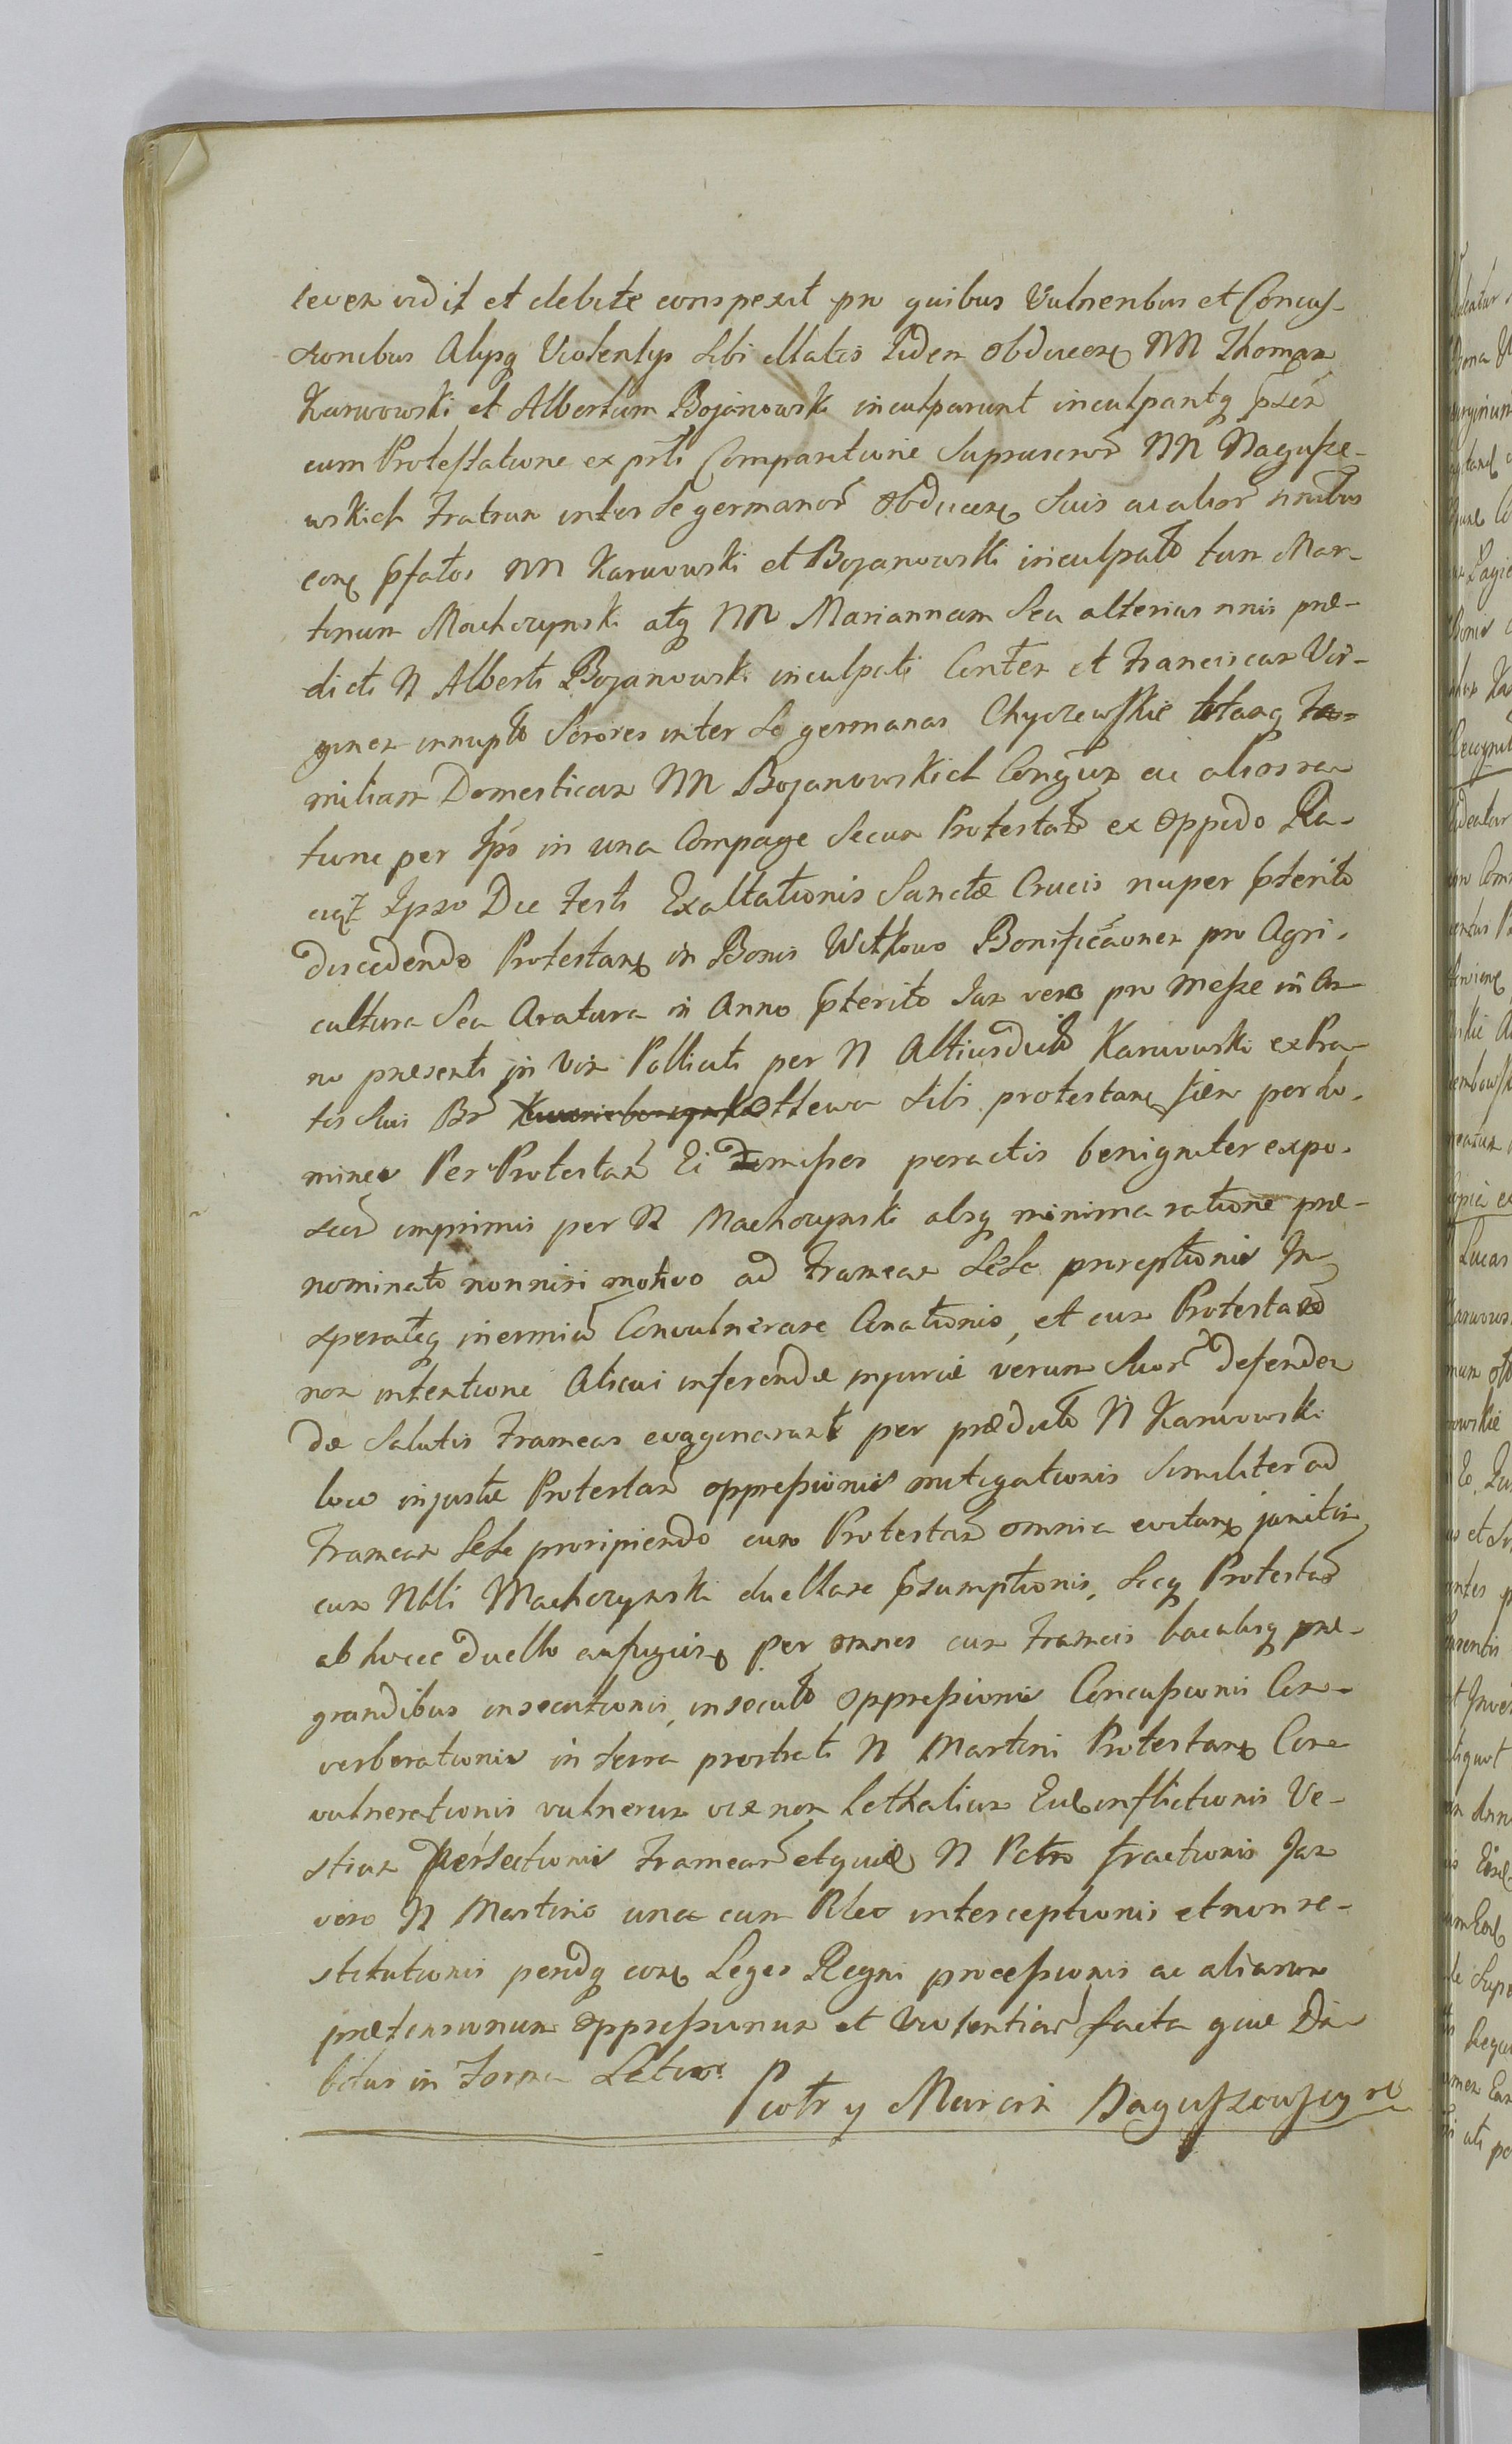 lever vidit et debite conspexit pro quibus Vulneribus et Concus-
sionibus Alysq Violentys sibi illatis Iidem obducen NN Thomam
Karwowski et Albertum Bojanowski inculparunt inculpantq
cum Protestatione ex Comparitione NN Nagusze-
wskich Fratrum inter se germanor obducen suis ac alior nnibus
con pfatos NN Karwowski et Bojanowski inculpato tum Mar-
tinum Machczynski atq NN Mariannam seu alterius nnis præ-
dicti N Alberti Bojanowski inculpati Conter et Franciscam Vir-
ginem innupto Sorores inter se germanas Chyczewskie totaq Fa-
miliam Domesticam NN Bojanowskich Congum ac alios ra-
tione per Ipso in una Compage secum Protestato ex Oppido Ra-
Ipso Die Festi Exaltationis Sanctæ Crucis nuper pterito
discedendo Protestan in Bonis Witkowo Bonificaonem pro Agri-
cultura seu Aratura in Anno pterito Jam vero pro Messe in An
no præsenti in Vim Pollicati per N Altiusdicto Karwowski ex Pra-
tis suis Br sibi protestan per ho-
mines Per Protestan Ei Demisses peractis benigniter expo-
scen imprimis per N Machczynski absq minima ratione præ-
nominato nonnisi motivo ad Frameam sese proreptionis In-
sperateq inermiu Convulnerare Conationis, et cum Protestato
non intentione Alicui inferendæ injuriæ verum suor defenden
dæ Salutis Frameas evaginarunt per prædicto N Karwowski
loco injustæ Protestan oppressionis mitigationis similiter ad
Frameam sese proripiendo cum Protestan omnia evitan junctim
cum Nbli Machczynski duellare psumptionis, secq Protestan
ab hocce Duello aufugien per omnes cum Frameis baculisq præ-
grandibus insecutionis, insecuto oppressionis Concussionis Con-
verberationis in terra prostrati N Martini Protestan Con-
vulnerationis vulnerum vix non Lethalium Eive inflictionis Ve-
stium persectionis Framear N Petro fractionis Jam
vero N Martino una cum interceptionis et non re-
stitutionis pendq con Leges Regni processionis ac aliarum
prætensionum oppressionum et Violentiar facta quæ Da
bitur in Forma Lativori
Piotr y Marcin Naguszewscy